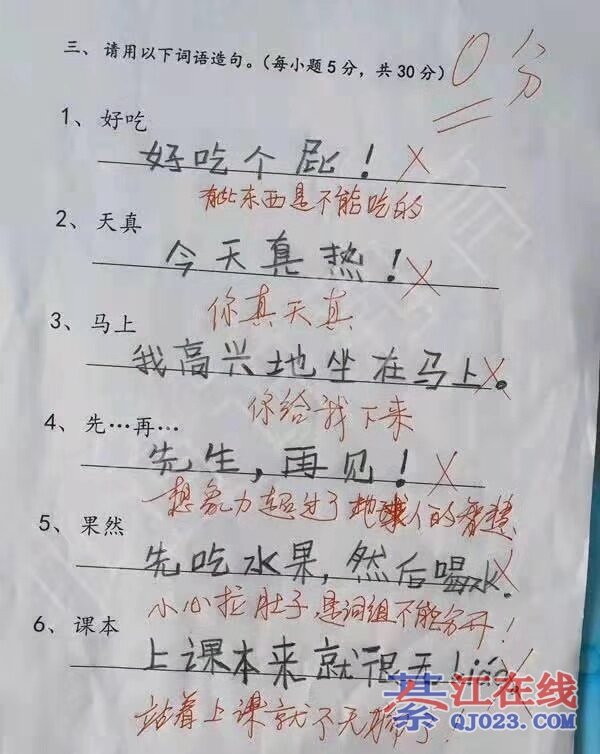 三、请用以下词语造句。(每小题5分，共30分)
0分
1、好吃
好吃个屁！
有些东西是不能吃的
2、天真
今天真热！
你真天真
3、马上
我高兴地坐在马上。
你给我下来
4、先…再…
先生，再见！
想象力超过了地球人的智慧
5、果然
先吃水果，然后喝水.
小心拉肚子 是词组不能分开！
6、课本
上课本来就很无liáo
站着上课就不无聊了
綦江在线
QJ023.COM